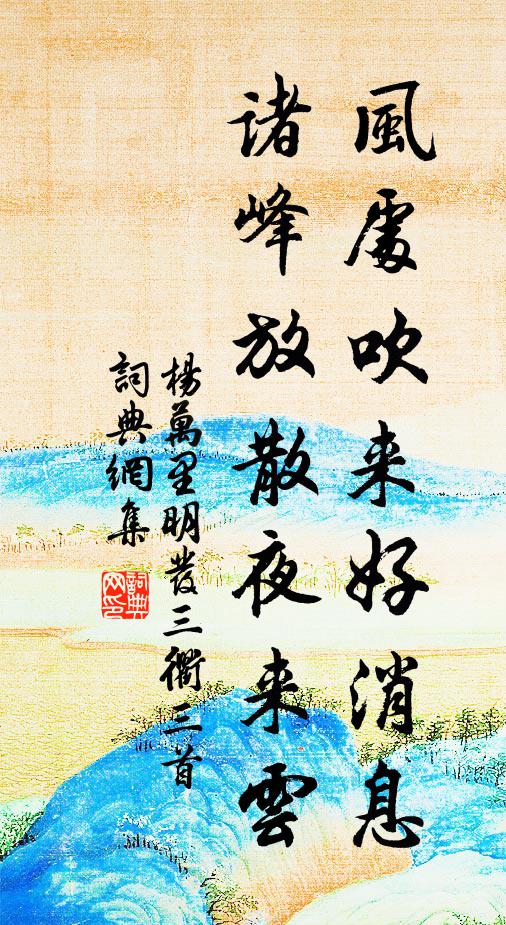 風處吹来好消息
諸峰放散夜来雲
楊萬里明發三衢三首
詞典網集
詞典网印